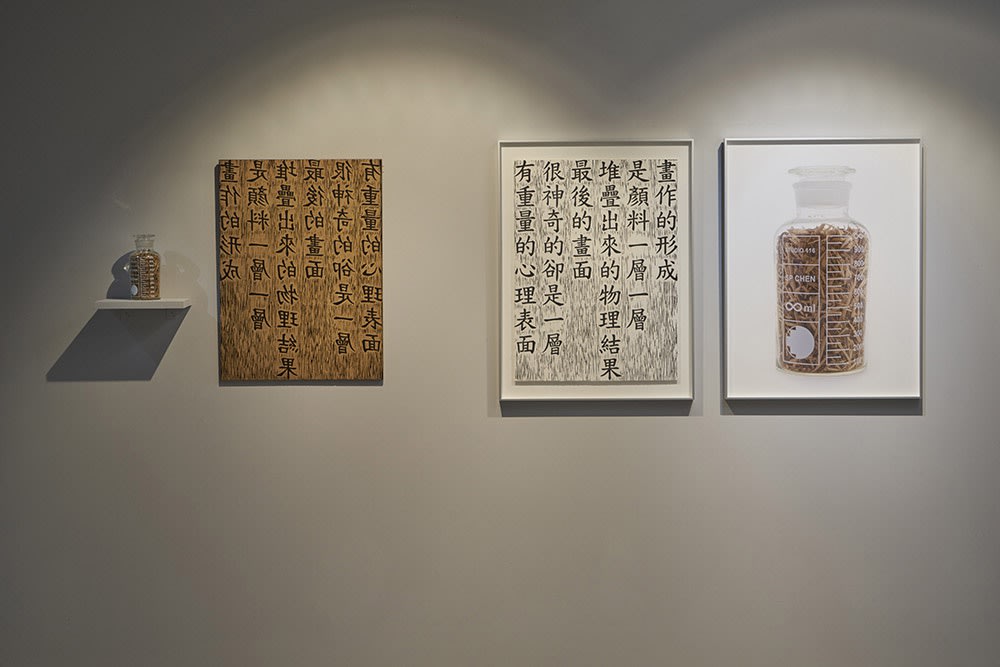 畫作的形成
是顏料一層一層
堆疊出來的物理結果
最後的畫面
很神奇的卻是一層
有重量的心理表面
畫作的形成
是顏料一層一層
堆疊出來的物理結果
最後的畫面
很神奇的卻是一層
有重量的心理表面
CHEN
∞ ml